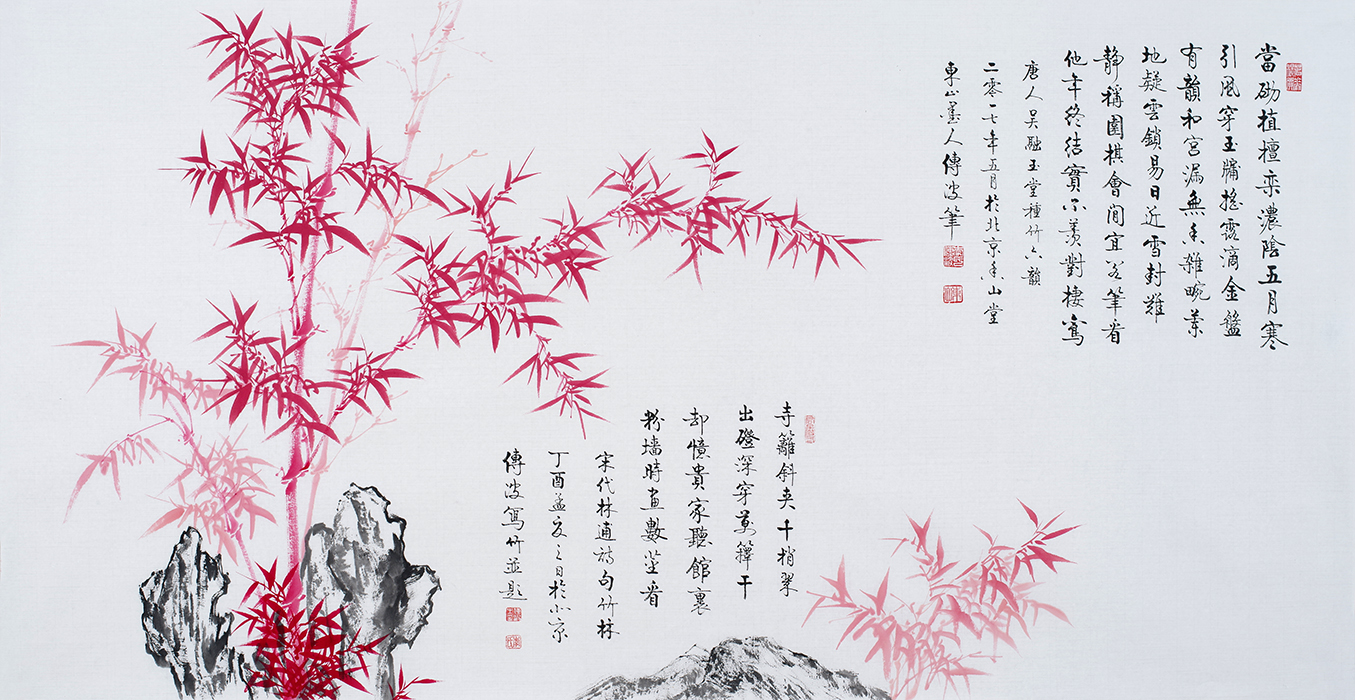 當砌植檀栾濃陰五月寒
引風穿玉牖搖露滴金盤
有韻和宮漏無香雜畹
地疑雲鎖易日近雪封難
静稱圍棋會間宜筆看
他年終結實不羡對棲鸞
唐人吳融玉堂種竹六韻
二零一七年五月於北京香山堂
東山舊人傳波筆
寺籬斜夹千梢翠
出磴深穿萬籜干
却憶貴家聽館裏
粉墻時畫數莖看
宋代林逋詩句竹林
丁酉孟夏之日於北京
傳波寫竹並題